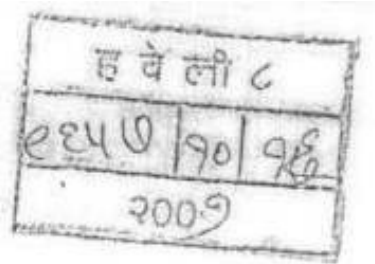 हवेली ८
९६५७ १० १६
२००७